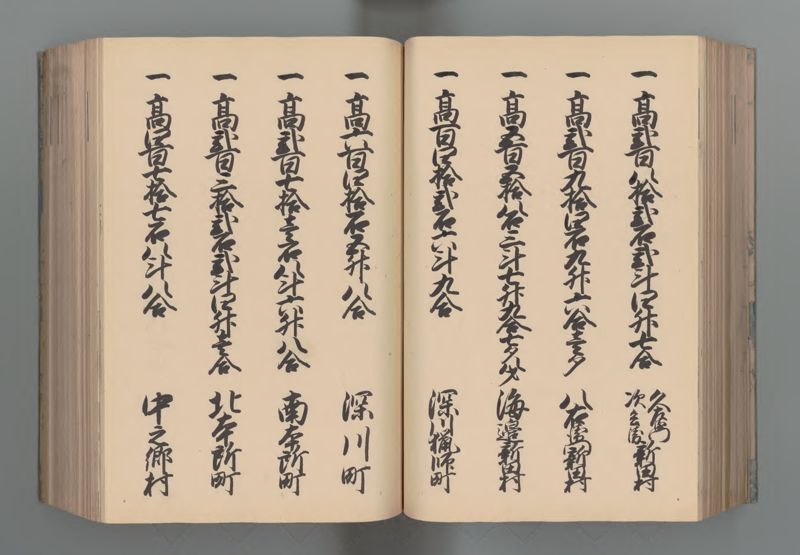 一高弐百八拾弐石弐斗四升七合 久左衛門次兵衛新田村
一高弐百九拾四石九升六合壱夕 八右衛門新田村
一高五百五拾八石三斗七升九合七夕 海辺新田村
一高百四拾弐石六斗九合 深川猟師町
一高六百四拾石五升八合 深川町
一高弐百七拾壱石八斗六升八合 南本所町
一高弐百三拾弐石弐斗四升壱合 北本所町
一高四百七拾七石八斗八合 中之郷村